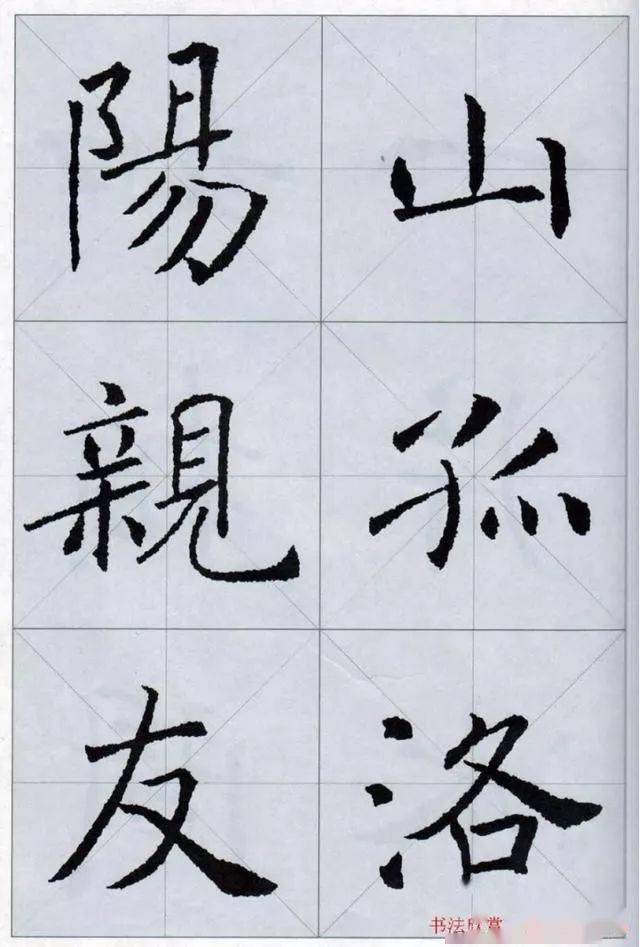 山孤洛
陽親友
书法欣赏